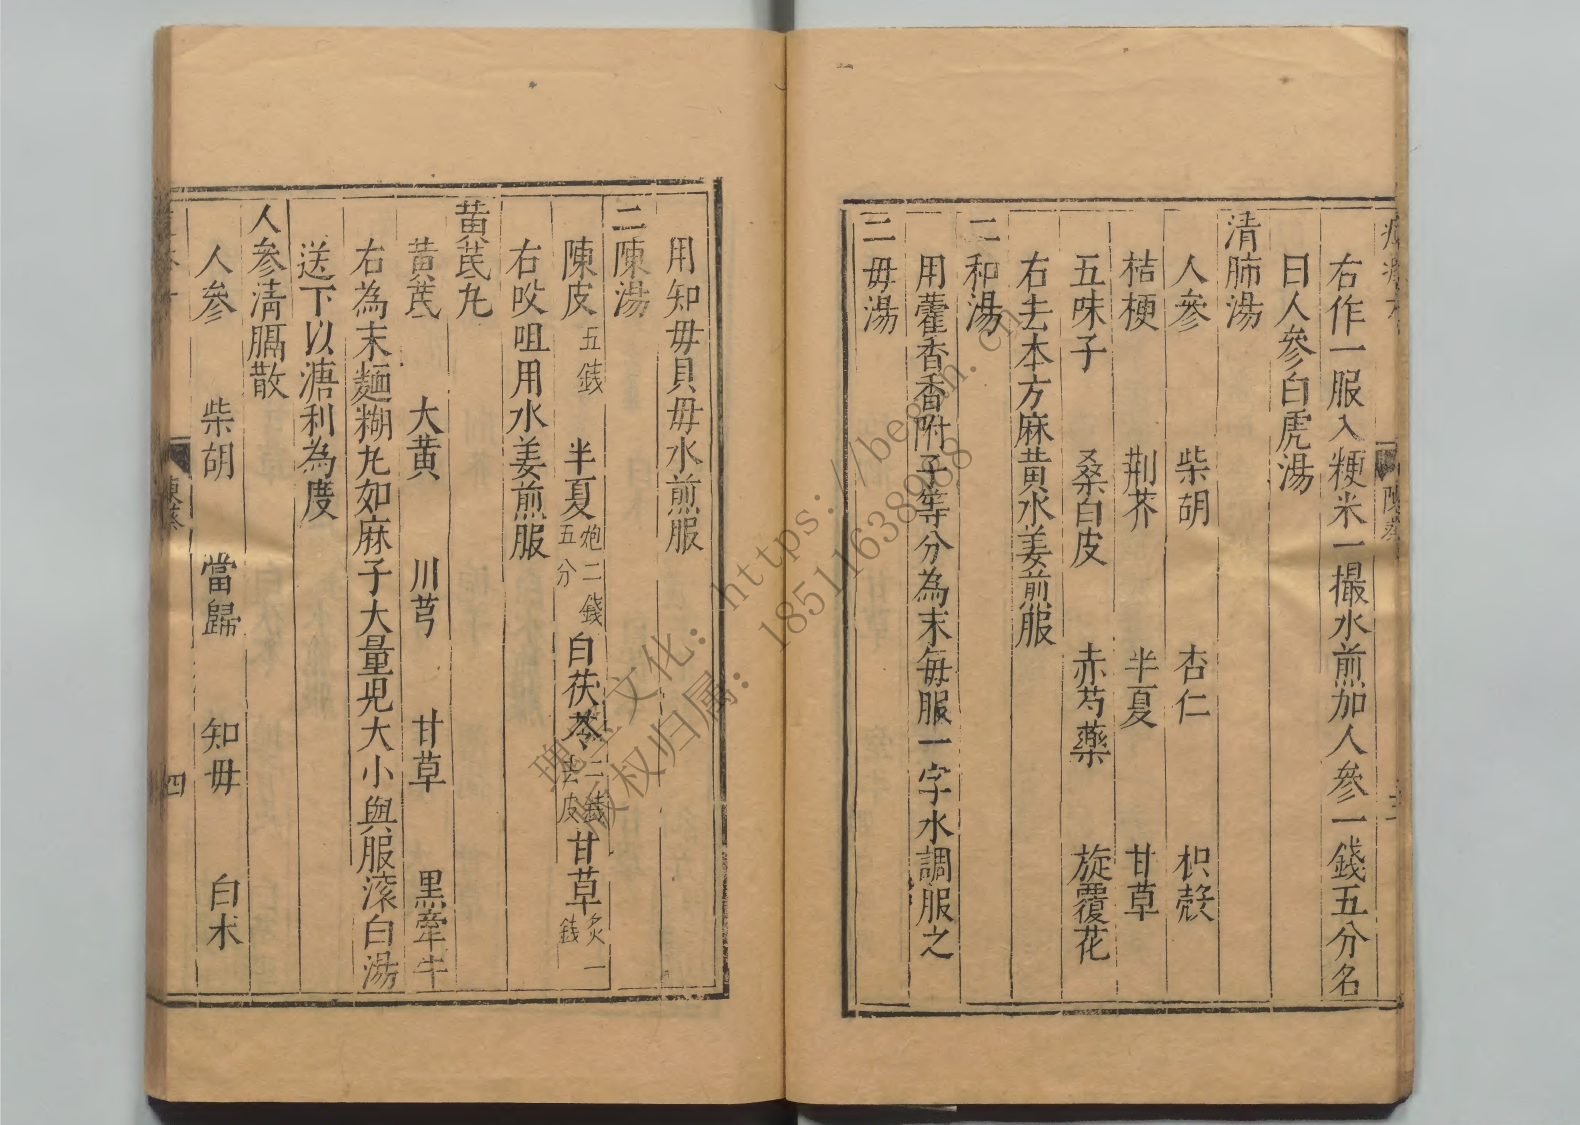 右作一服入粳米一撮水煎加人參一錢五分名
曰人參白虎湯
清肺湯
人參 柴胡 杏仁 枳殼
桔梗 荆芥 半夏 甘草
五味子 桑白皮 赤芍藥 旋覆花
右去本方麻黄水姜煎服
二和湯
用藿香香附子等分為末每服一字水調服之
二毋湯
用知毋貝毋水煎服
二陳湯
陳皮五銭 半夏炮二錢五分 白茯苓二錢去皮 甘草炙一銭
右㕮咀用水姜煎服
黄芪丸
黄芪 大黄 川芎 甘草 黑牽牛
右為末麺糊丸如麻子大量児大小與服滚白湯
送下以溏利為度
人參清膈散
人參 柴胡 當歸 知毋 白朮
四
瑰宝文化：https://began.cn
版权归属：18511638988